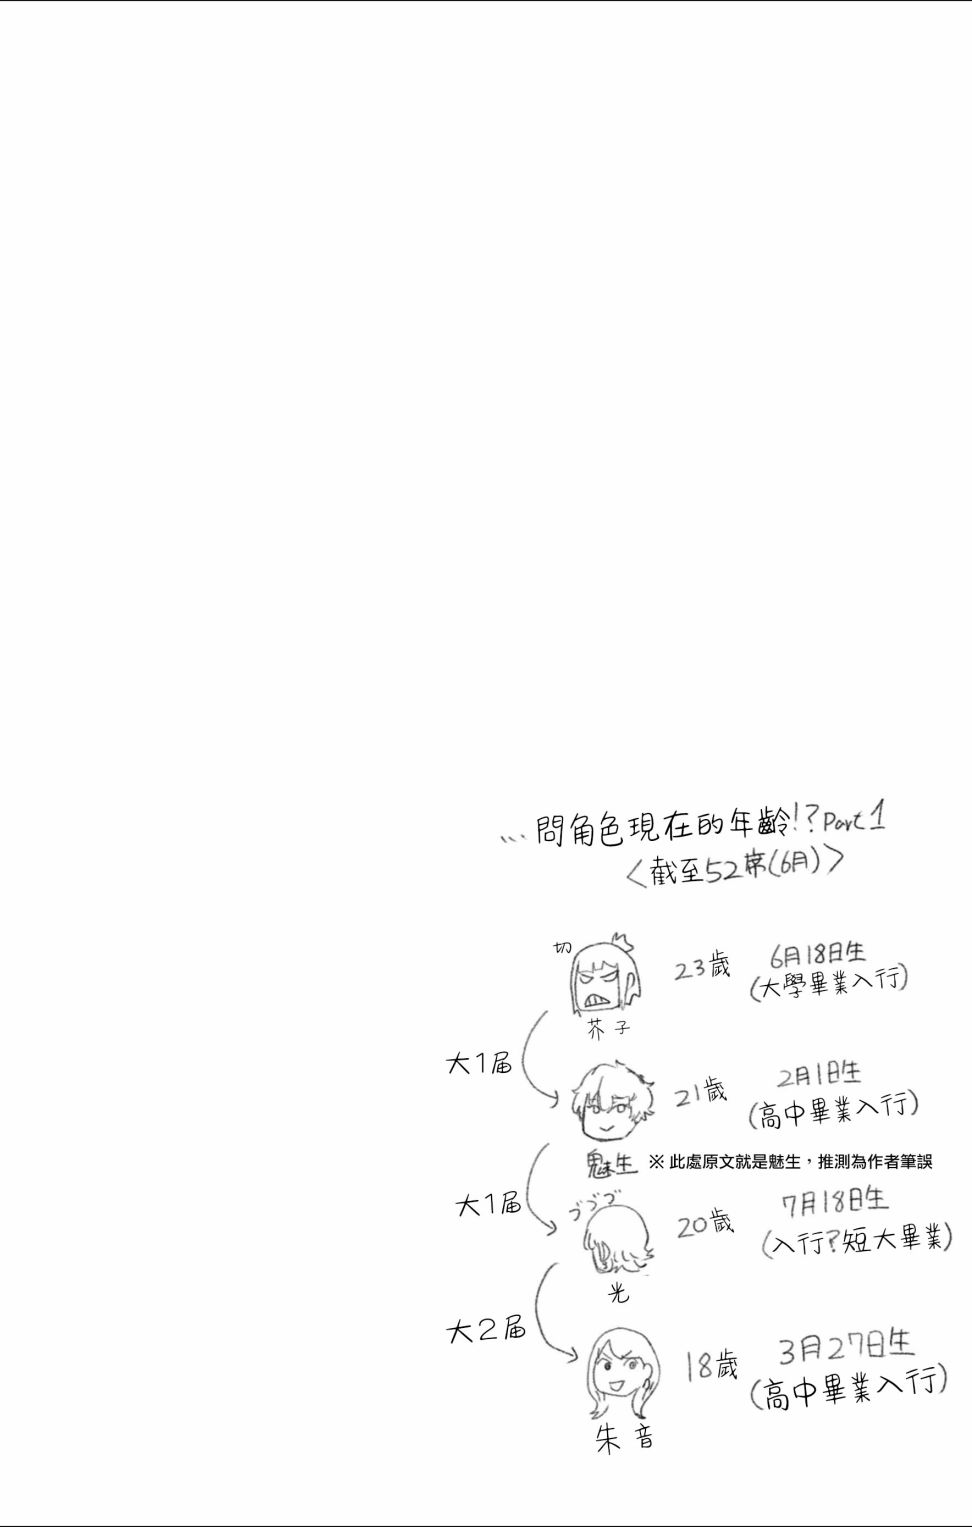 ...問角色現在的年齡!?Part1
〈截至52席(6月)〉
切
23歲
6月18日生
(大學畢業入行)
芥子
大1届
21歲
2月1日生
(高中畢業入行)
魅生
※此處原文就是魅生，推測為作者筆誤
大1届
づづづ
20歲
7月18日生
(入行?短大畢業)
光
大2届
18歲
3月27日生
(高中畢業入行)
朱音